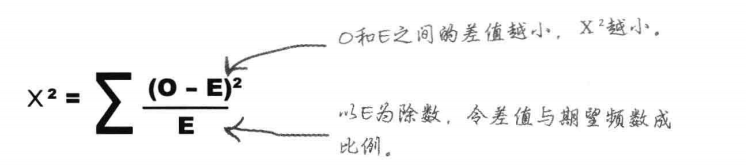 O和E之间的差值越小，X²越小。
X² = ∑ (O – E)² / E
以E为除数，令差值与期望频数成
比例。